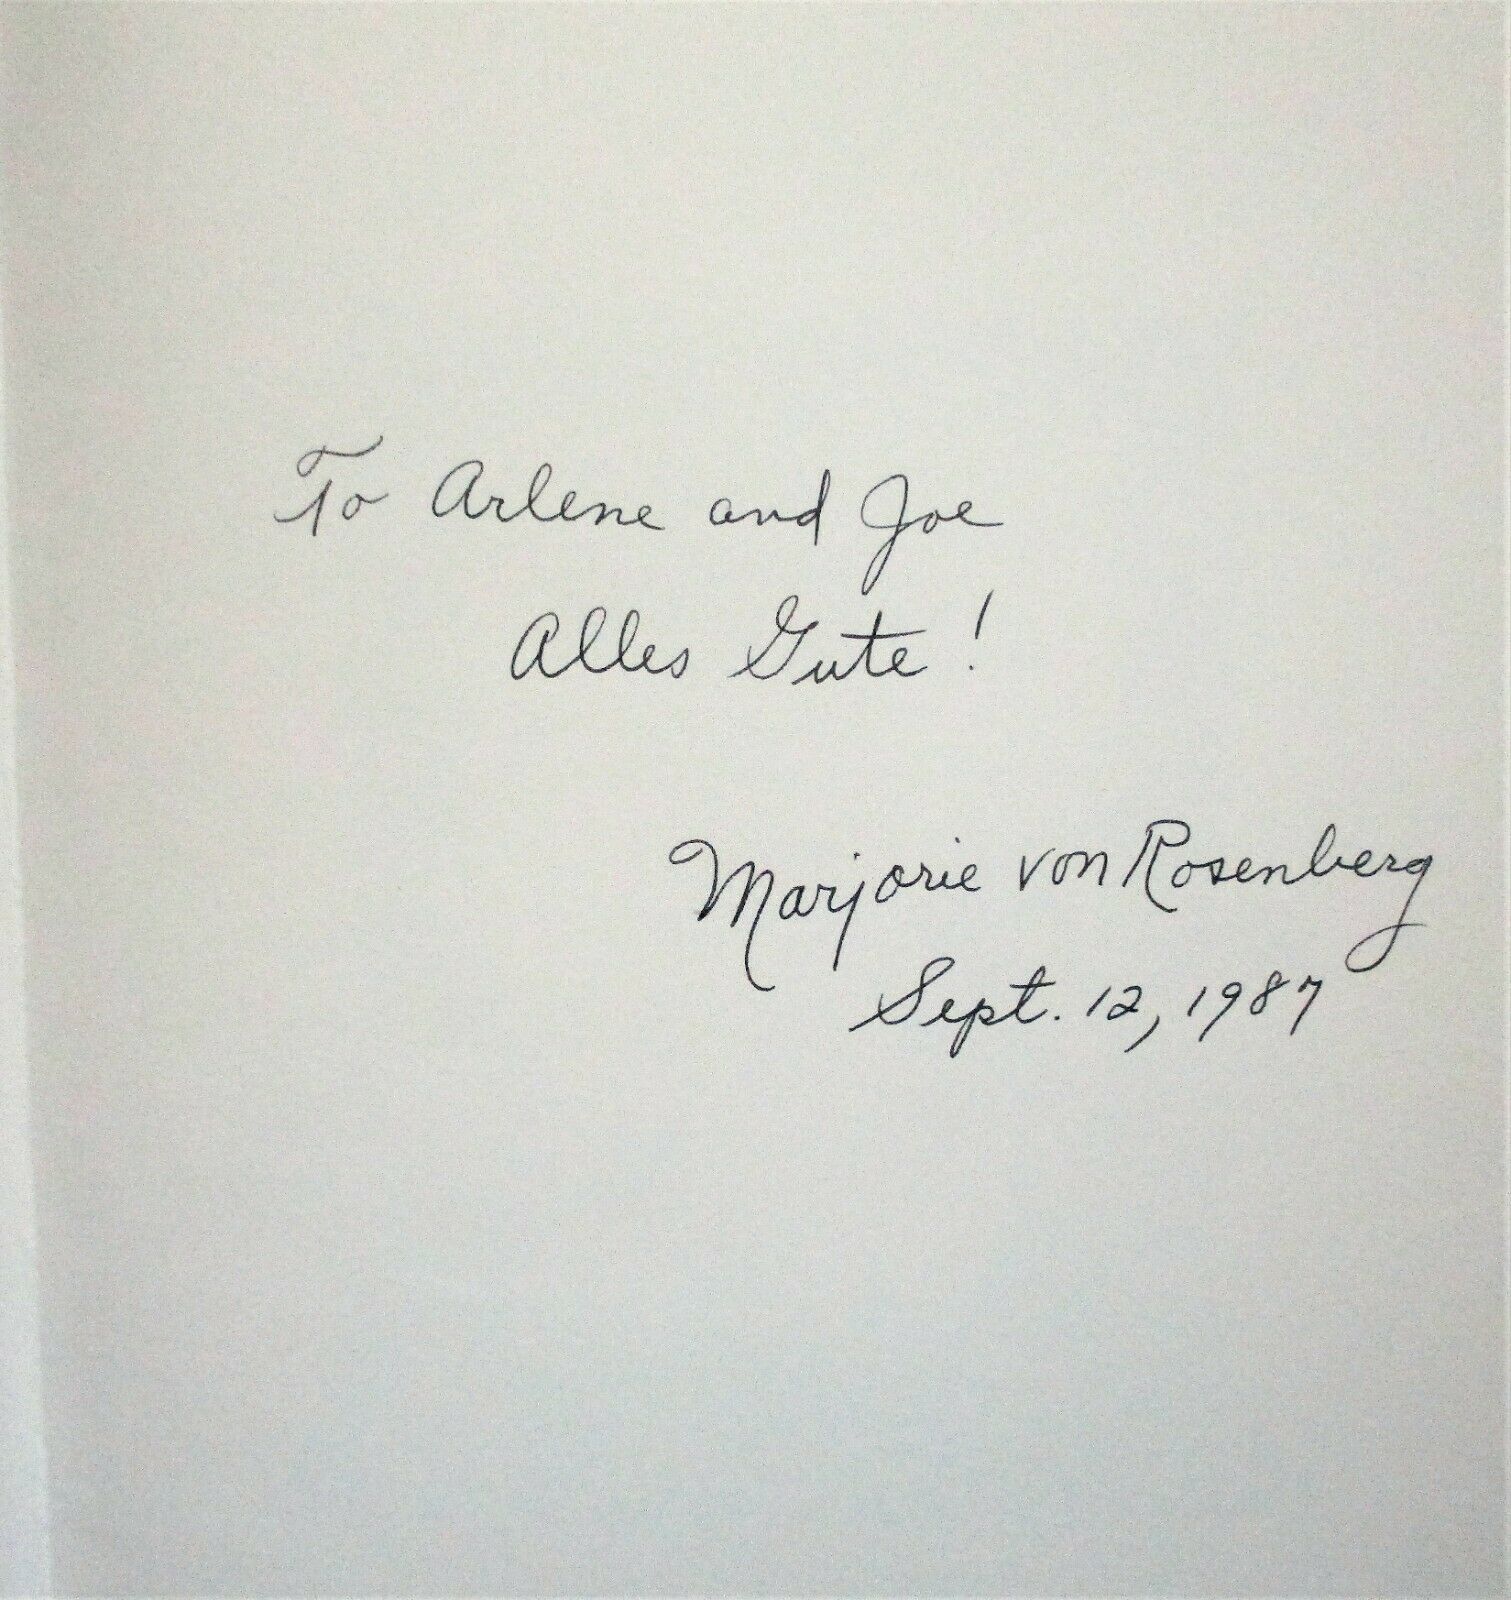 To Arlene and Joe
Alles Gute!
Marjorie von Rosenberg
Sept. 12, 1987